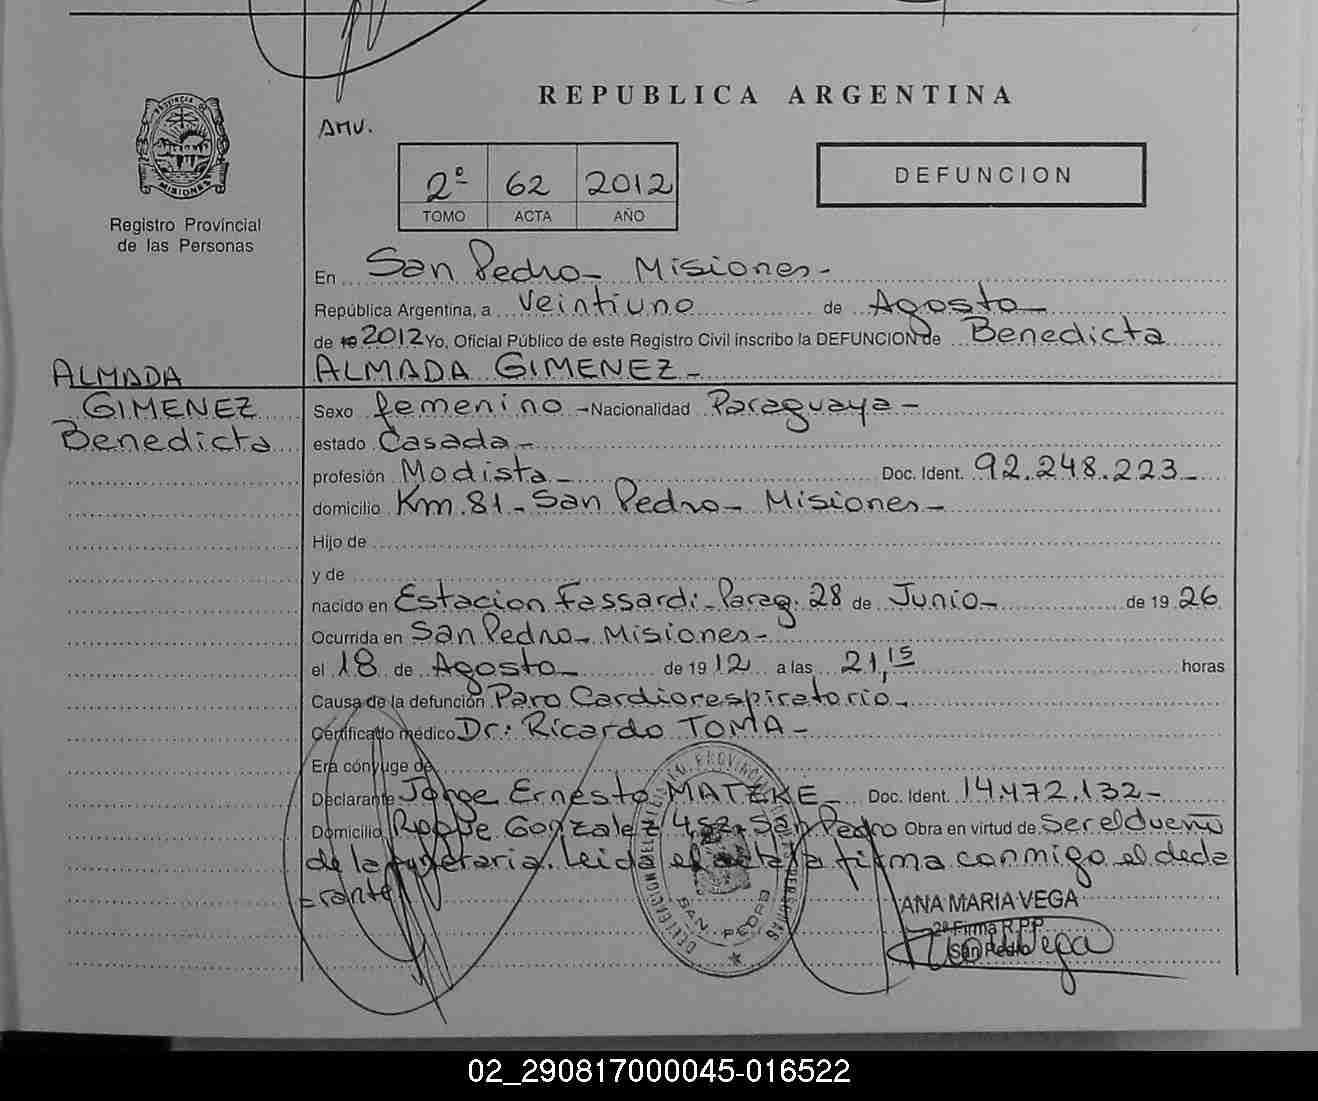 REPUBLICA ARGENTINA
AMV.
PROVINCIA DE
MISIONES
Registro Provincial
de las Personas
2º 62 2012
TOMO ACTA AÑO
DEFUNCION
En San Pedro - Misiones -
República Argentina, a Veintiuno de Agosto -
de 19 2012 Yo, Oficial Público de este Registro Civil inscribo la DEFUNCION de Benedicta
ALMADA GIMENEZ -
ALMADA
GIMENEZ
Benedicta
Sexo femenino - Nacionalidad Paraguaya -
estado Casada -
profesión Modista - Doc. Ident. 92.248.223 -
domicilio Km. 81 - San Pedro - Misiones -
Hijo de
y de
nacido en Estacion Fassardi - Parag. 28 de Junio - de 19 26
Ocurrida en San Pedro - Misiones -
el 18 de Agosto - de 19 12 a las 21,15 horas
Causa de la defunción Paro Cardiorespiratorio -
Certificado médico Dr: Ricardo TOMA -
Era cónyuge de
Declarante Jorge Ernesto MATZKE - Doc. Ident. 14.472.132 -
Domicilio Roque Gonzalez 452 - San Pedro Obra en virtud de Ser el dueño
de la funeraria. Leida el acta la firma conmigo el decla
- rante
SAN PEDRO
ANA MARIA VEGA
2ª Firma R.P.P.
San Pedro
02_290817000045-016522